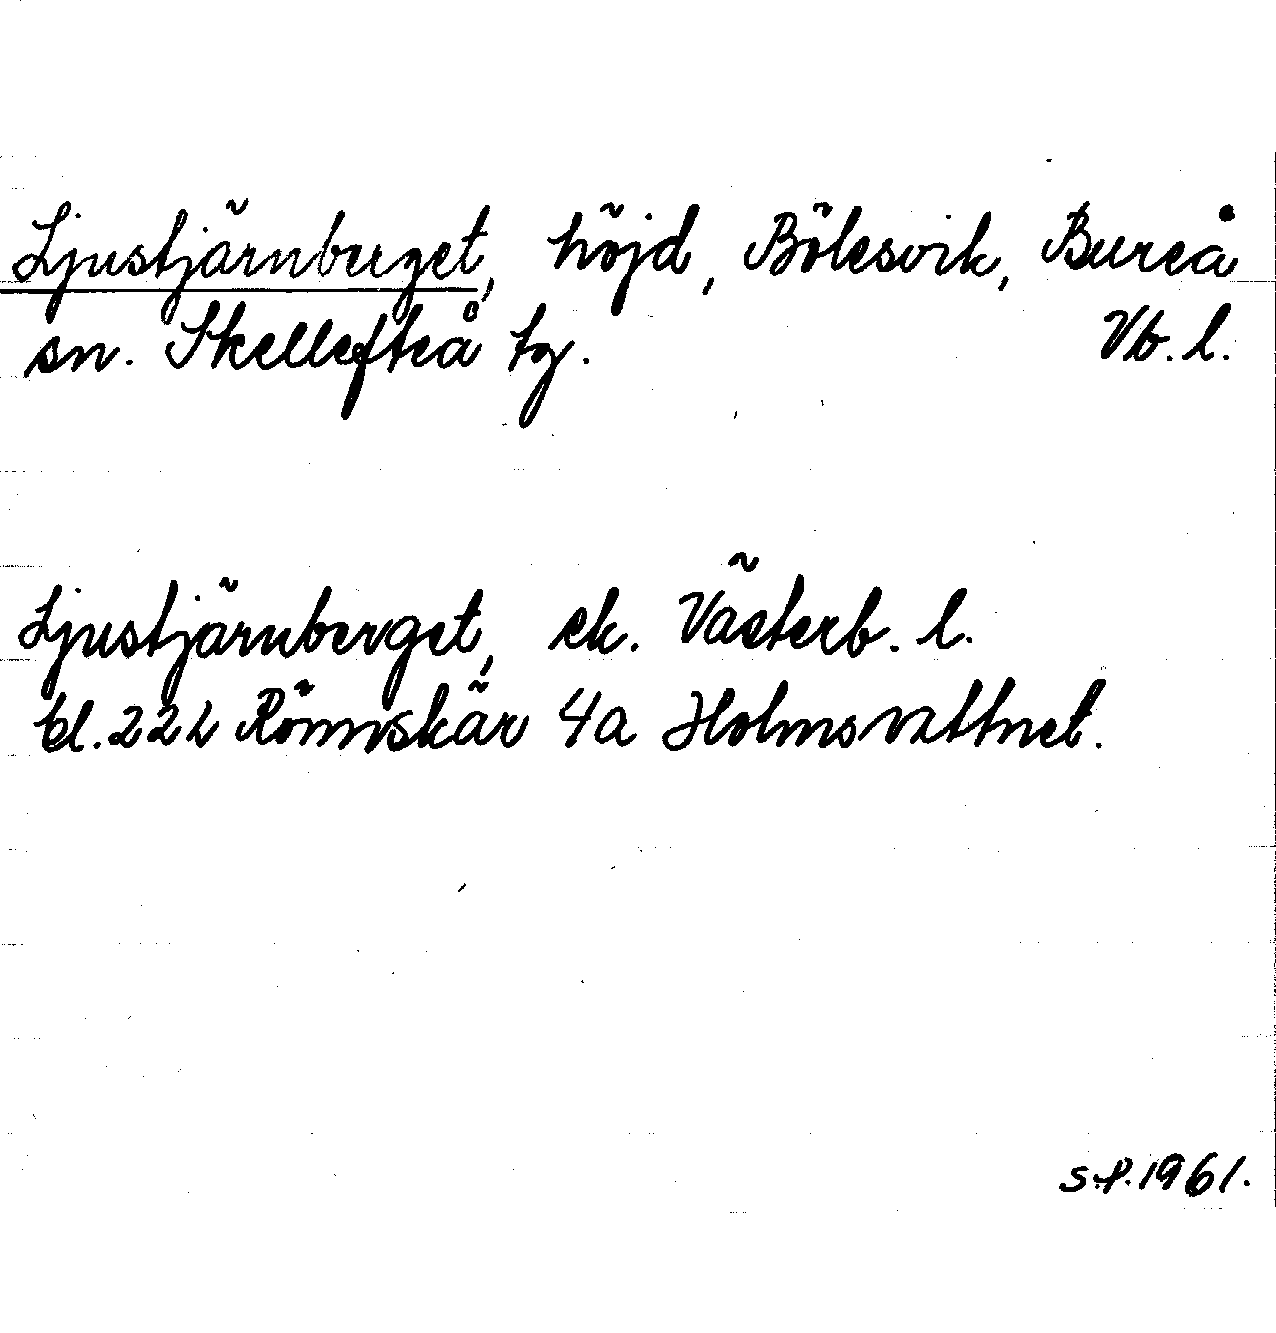 Ljustjärnberget, höjd, Bölesvik, Bureå
sn. Skellefteå tg. Vb. l.
Ljustjärnberget, ek. Västerb. l.
bl. 22L Rönnskär 4a Holmsvattnet.
S.P. 1961.